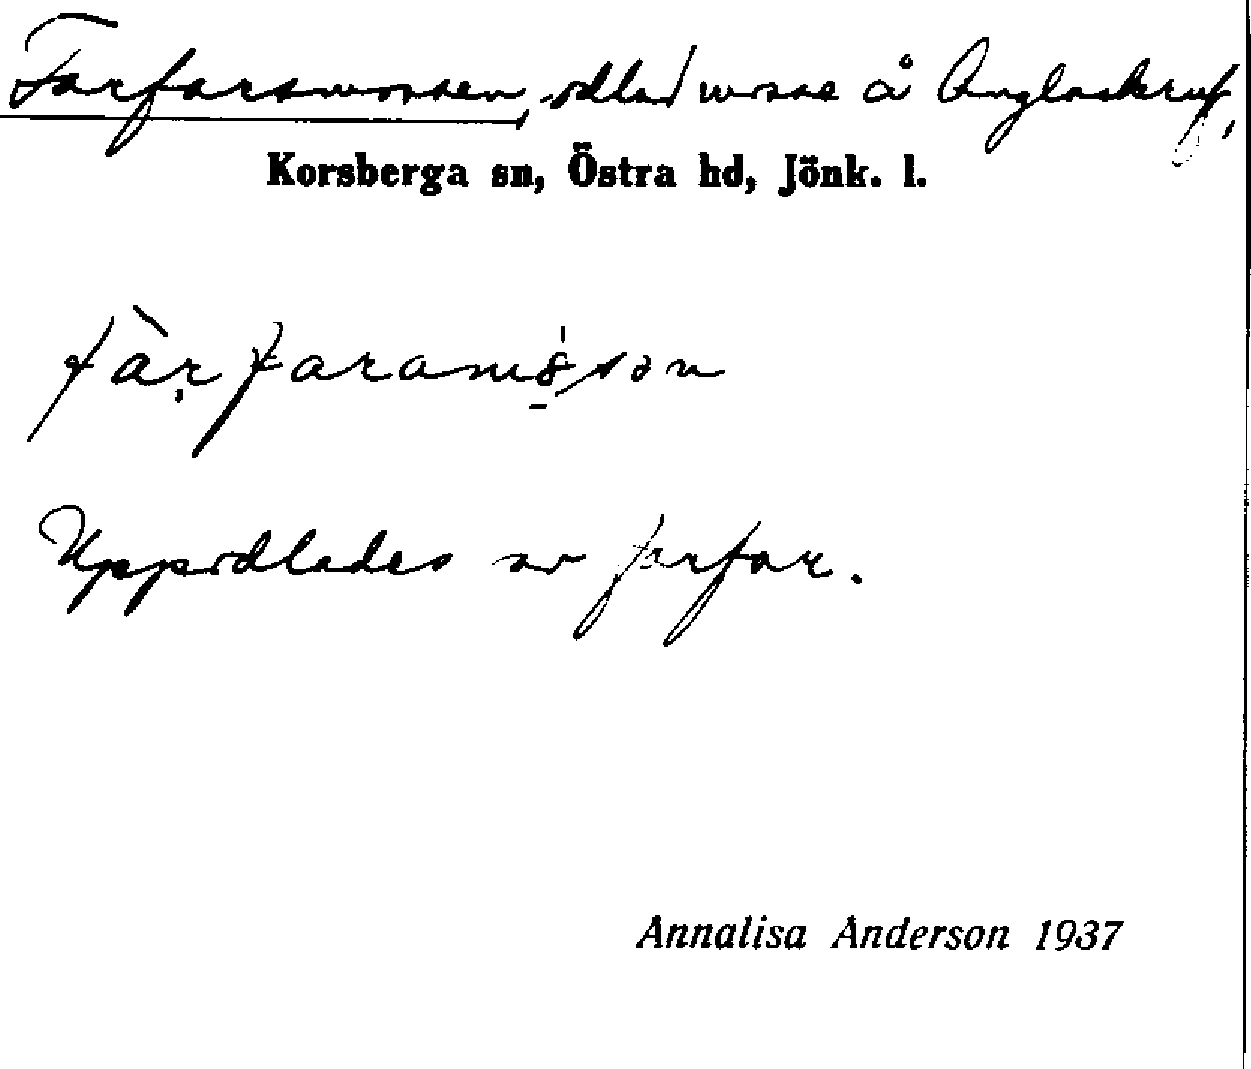 Farfarsmossen, odlad mosse å Änglaskruf,
Korsberga sn, Östra hd, Jönk. l.
Uppodlades av farfar.
Annalisa Anderson 1937